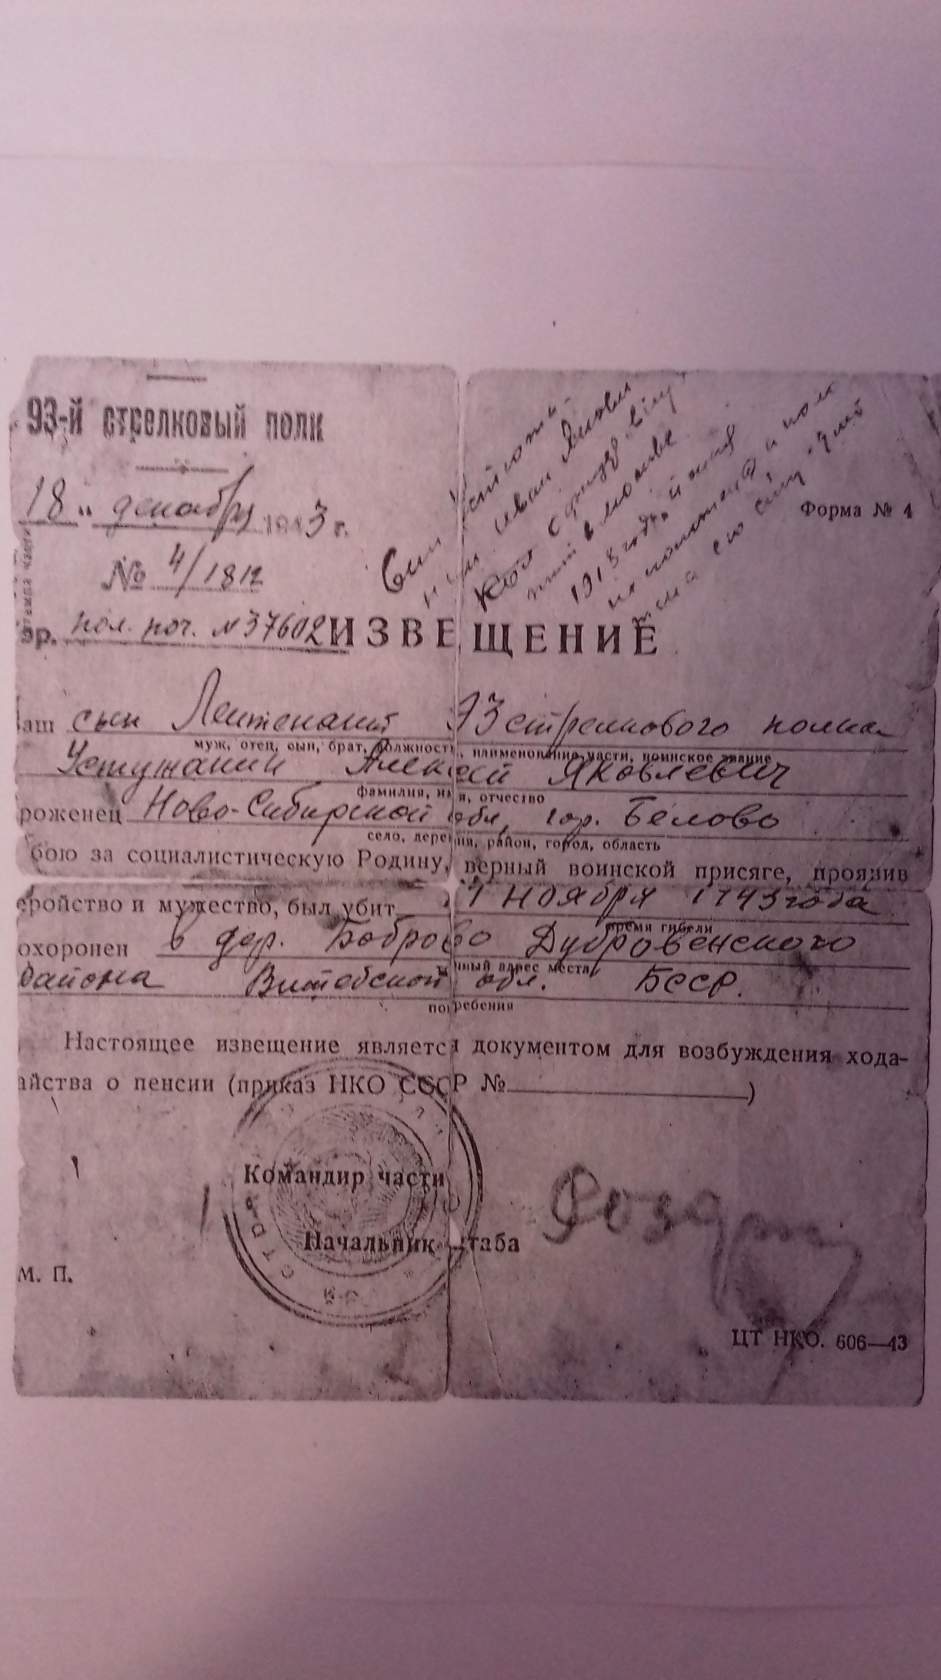 93-й стрелковый полк
18 „ декабря 1943 г.
Форма № 4
№ 4/1812
пол. поч. №37602
ИЗВЕЩЕНИЕ
аш сын Лейтенант 93 стрелкового полка
муж, отец, сын, брат, должность, наименование части, воинское звание
Устужанин Алексей Яковлевич
фамилия, имя, отчество
роженец Ново-Сибирской обл, гор. Белово
село, деревня, район, город, область
бою за социалистическую Родину, верный воинской присяге, проявив
еройство и мужество, был убит ноября 1943 года
время гибели
охоронен в дер. Боброво Дубровенского
чный адрес места
района Витебской обл. БССР.
погребения
Настоящее извещение является документом для возбуждения хода-
айства о пенсии (приказ НКО СССР № )
Командир части
Начальник штаба
М. П.
ЦТ НКО. 606—43